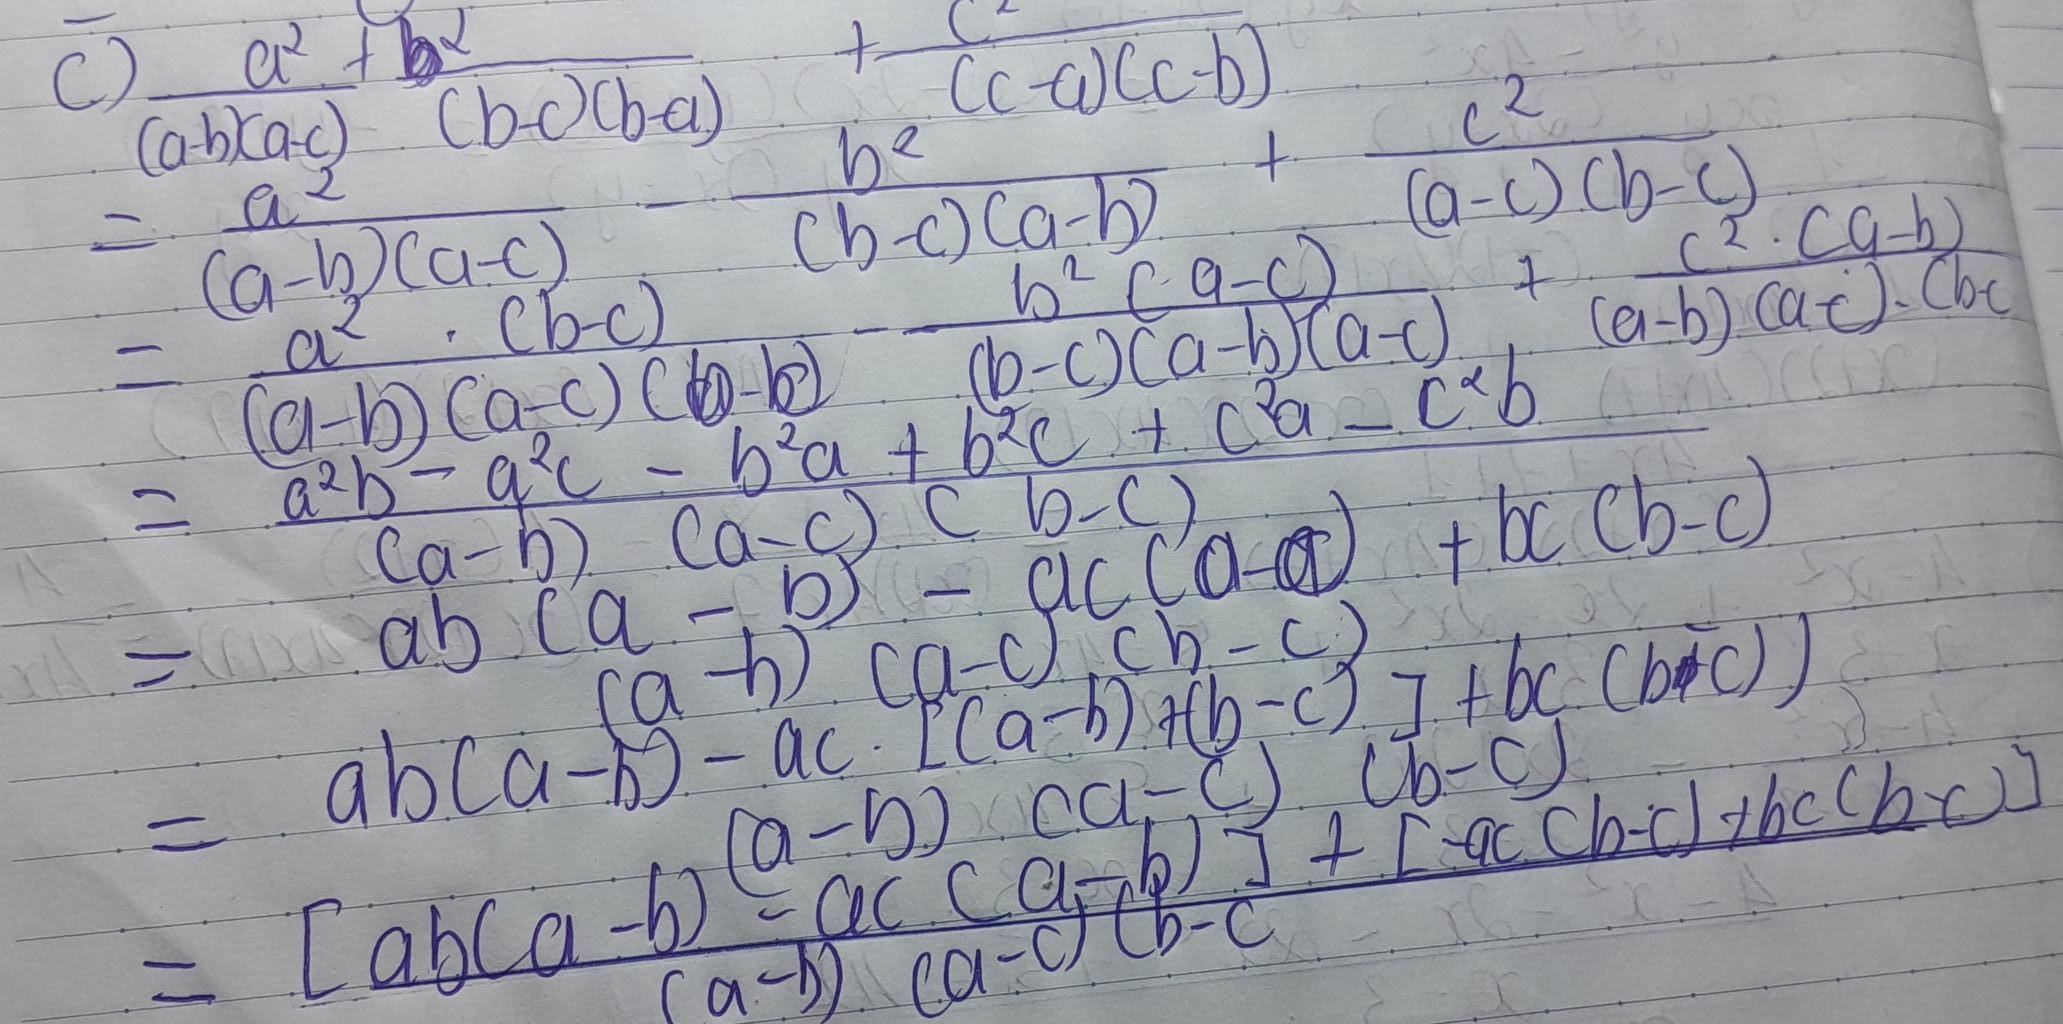 c) a² / (a-b)(a-c) + b² / (b-c)(b-a) + c² / (c-a)(c-b)
= a² / (a-b)(a-c) - b² / (b-c)(a-b) + c² / (a-c)(b-c)
= a² . (b-c) / (a-b)(a-c) - b² (a-c) / (b-c)(a-b)(a-c) + c² . (a-b) / (a-b)(a-c).(b-c
= a²b - a²c - b²a + b²c + c²a - c²b / (a-b) (a-c) (b-c)
= ab (a-b) - ac (a-) + bc (b-c) / (a-b) (a-c) (b-c)
= ab(a-b) - ac . [(a-b)+(b-c)] + bc (b-c)] / (a-b) (a-c) (b-c)
= [ab(a-b) - ac (a-b)] + [-ac (b-c) + bc (b-c)] / (a-b) (a-c) (b-c